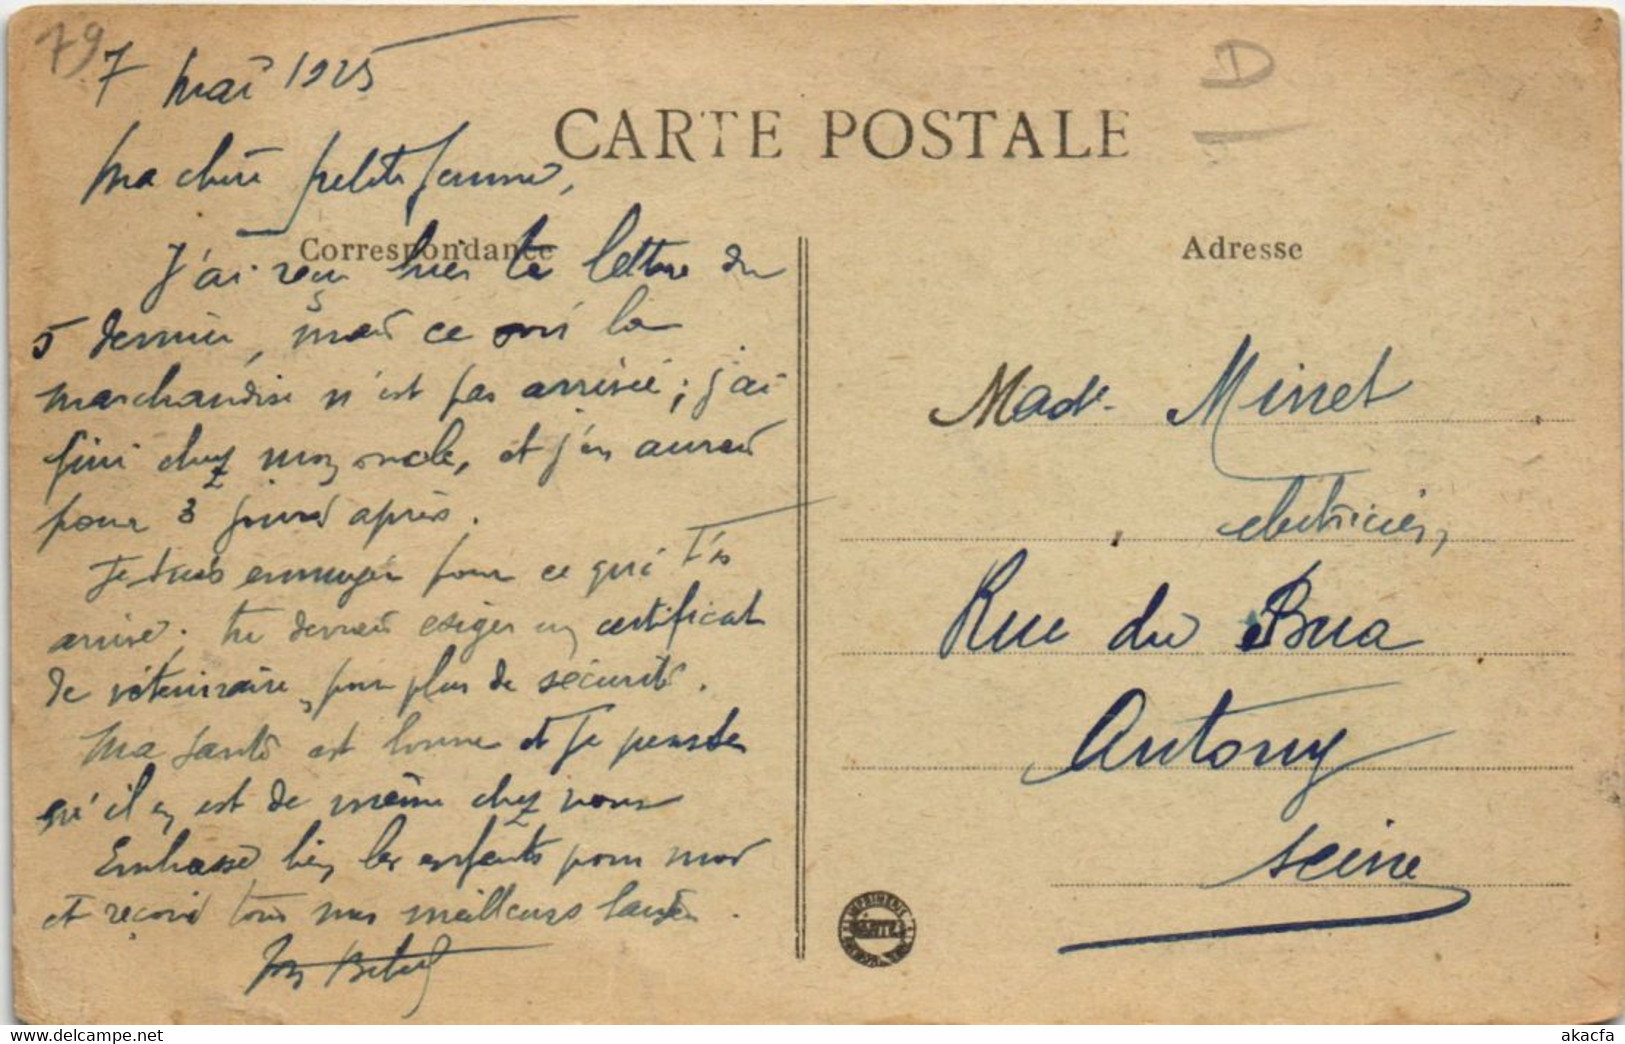 79
7 mai 1925
D
CARTE POSTALE
Ma chère petite femme,
Correspondance
J'ai reçu hier ta lettre du
5 dernier, mais ce soir la
marchandise n'est pas arrivée ; j'ai
fini chez mon oncle, et j'en aurais
pour 3 jours après.
Je suis ennuyé pour ce qui t'es
arrivé ; tu devrais exiger un certificat
de vétérinaire, pour plus de sécurité.
Ma santé est bonne et je pense
qu'il en est de même chez vous
Embrasse bien les enfants pour moi
et reçois tous mes meilleurs
Adresse
Made Minet
électricien,
Rue du Bua
Antony
Seine
IMPRIMERIE
akacfa